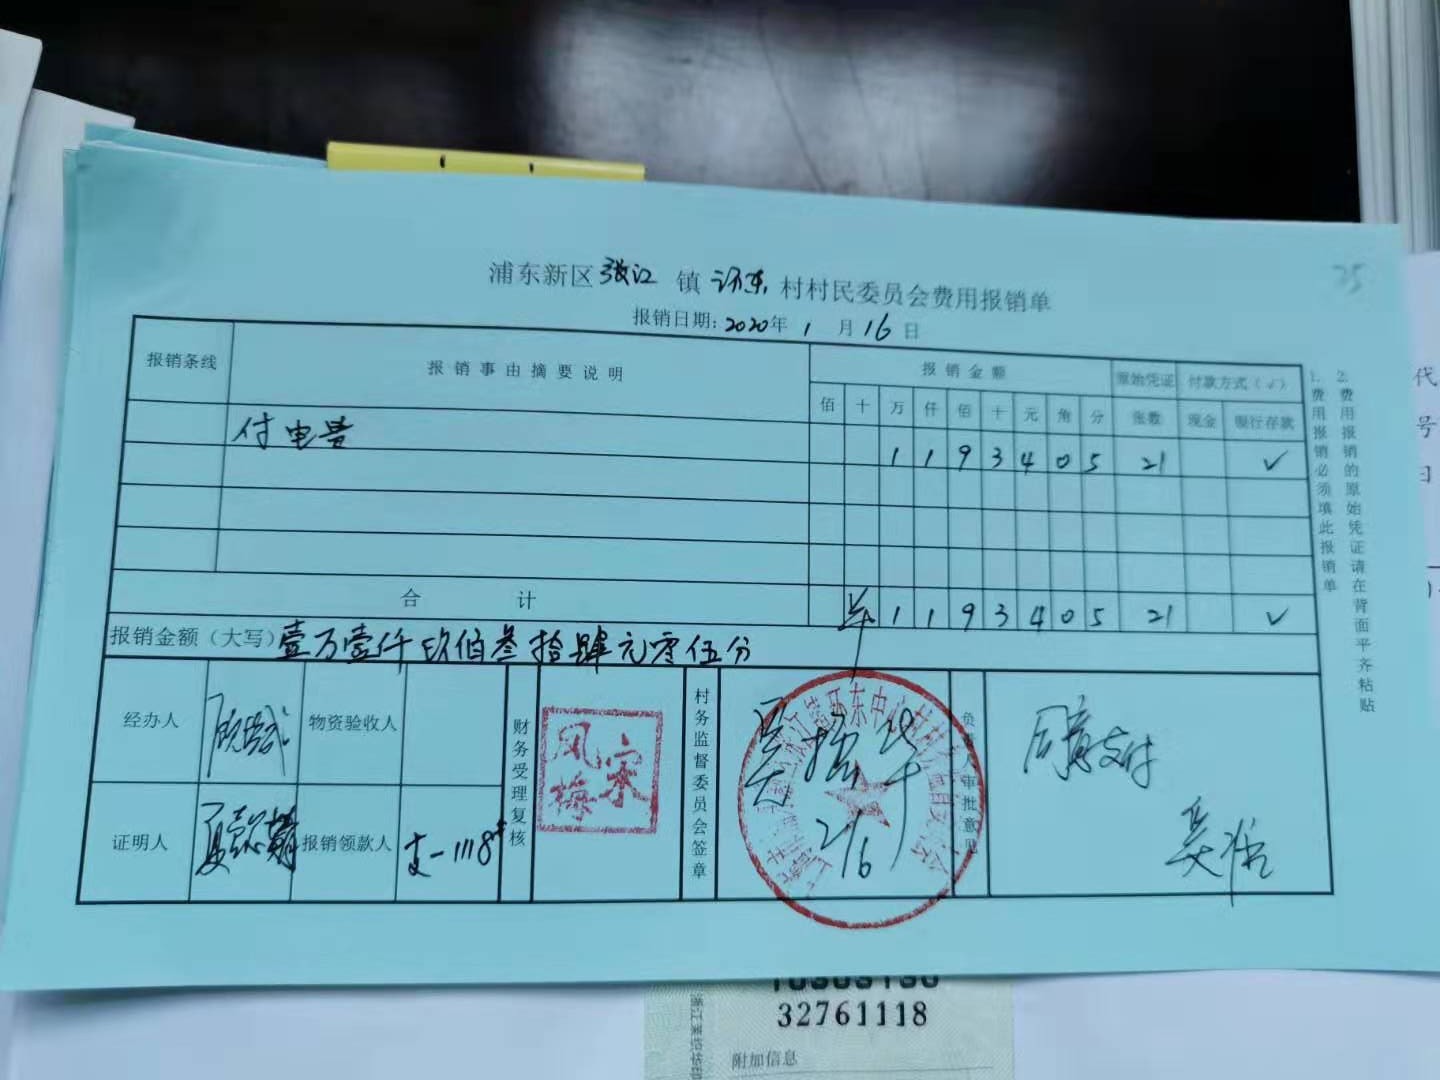 35
浦东新区张江镇环东村村民委员会费用报销单
报销日期:2020年1月16日
报销条线 报销事由摘要说明 报销金额 原始凭证 付款方式(√)
佰 十 万 仟 佰 十 元 角 分 张数 现金 银行存款
付电费 1 1 9 3 4 0 5 21 √
合计 ¥ 1 1 9 3 4 0 5 21 √
报销金额(大写)壹万壹仟玖佰叁拾肆元零伍分
经办人 物资验收人
证明人 报销领款人 支-1118#
财务受理复核
宋凤梅
村务监督委员会签章
2/16
负责人审批意见
同意支付
1.费用报销必须填此报销单
2.费用报销的原始凭证请在背面平齐粘贴
32761118
附加信息
代
号
日